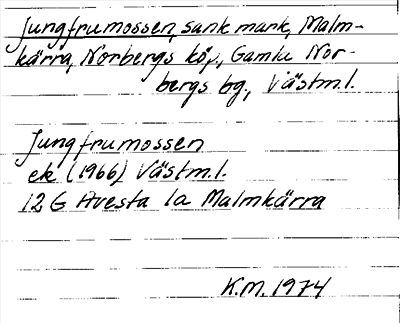 Jungfrumossen, sank mark, Malm-
kärra, Norbergs kp., Gamla Nor-
bergs bg., Västm.l.
Jungfrumossen
ek (1966) Västm.l.
12 G Avesta 1a Malmkärra
K.M. 1974